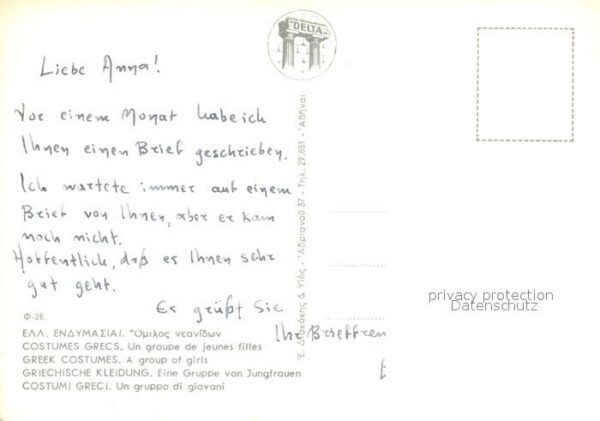 DELTA
Liebe Anna!
Vor einem Monat habe ich
Ihnen einen Brief geschrieben.
Ich wartete immer auf einem
Brief von Ihnen, aber er kam
noch nicht.
Hoffentlich, daß es Ihnen sehr
gut geht.
Es grüßt Sie
Ihr Brieffren
Φ-28.
ΕΛΛ. ΕΝΔΥΜΑΣΙΑΙ. Ὅμιλος νεανίδων
COSTUMES GRECS. Un groupe de jeunes filles
GREEK COSTUMES. A group of girls
GRIECHISCHE KLEIDUNG. Eine Gruppe von Jungfrauen
COSTUMI GRECI. Un gruppo di giovani
Ε. Διακάκης & Υἱὸς - Ἀδριανοῦ 37 - Τηλ. 29.851 - Ἀθῆναι
privacy protection
Datenschutz